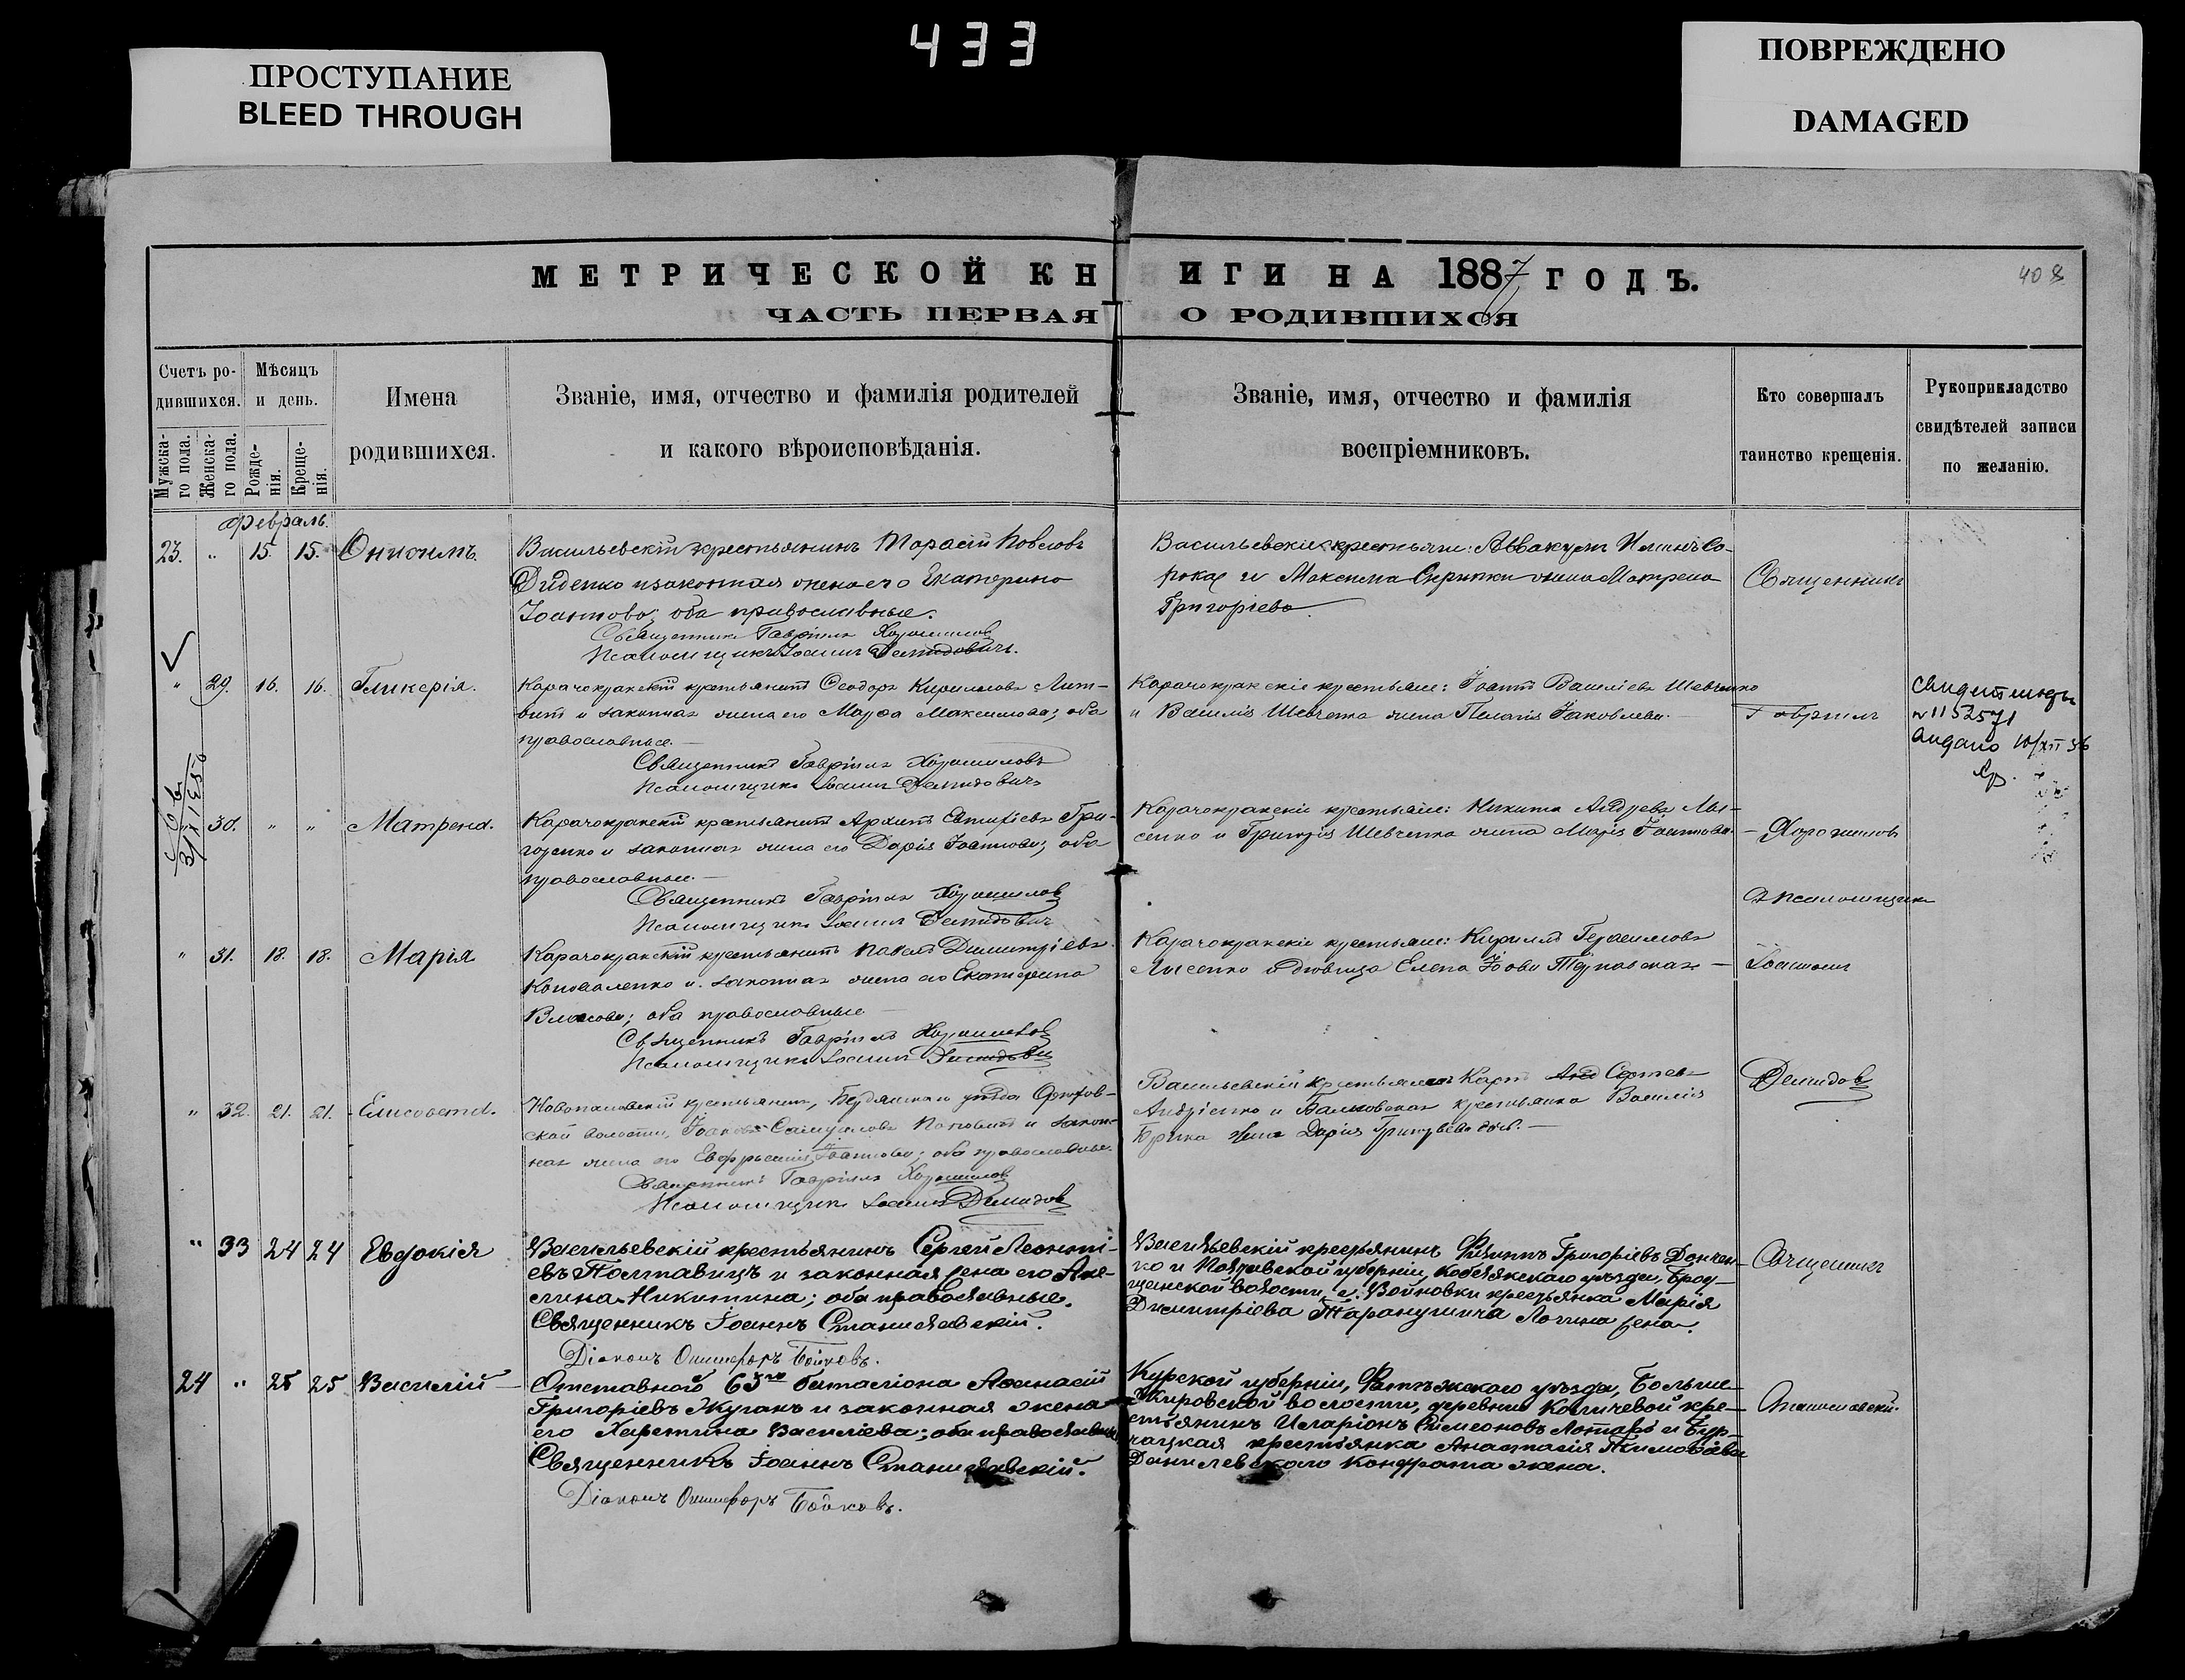 433
ПРОСТУПАНИЕ
BLEED THROUGH
ПОВРЕЖДЕНО
DAMAGED
МЕТРИЧЕСКОЙ КНИГИ НА 1887 ГОДЪ.
408
ЧАСТЬ ПЕРВАЯ О РОДИВШИХСЯ
Счетъ ро-
дившихся.
Мужска-
го пола.
Женска-
го пола.
Мѣсяцъ
и день.
Рожде-
нія.
Креще-
нія.
Имена
родившихся.
Званіе, имя, отчество и фамилія родителей
и какого вѣроисповѣданія.
Званіе, имя, отчество и фамилія
воспріемниковъ.
Кто совершалъ
таинство крещенія.
Рукоприкладство
свидѣтелей записи
по желанію.
Февраль.
23. " 15. 15. Онисимъ.
Васильевскій крестьянинъ Тарасій Павловъ
Диденко и законная жена его Екатерина
Іоаннова; оба православные.
Священникъ Гавріилъ Хорошиловъ
Псаломщикъ Іоаннъ Демидовичъ.
Васильевскіе крестьяне: Аввакумъ Со-
рока и Максима Скрипки жена Матрена
Григоріева
Священникъ
" 29. 16. 16. Гликерія.
Карачокракскій крестьянинъ Ѳеодоръ Кирилловъ Лит-
винъ и законная жена его Марѳа Максимова; оба
православные.
Священникъ Гавріилъ Хорошиловъ
Псаломщикъ Іоаннъ Демидовичъ
Карачокракскіе крестьяне: Іоаннъ Васильевъ Шевченко
и Василія Шевченка жена Пелагія Іаковлева.
Гавріилъ
№ 1152571
Выдано 10/XII 36
" 30. " " Матрена.
Карачокракскій крестьянинъ Архипъ Гри-
горенко и законная жена его Дарія Іоаннова; оба
православные.
Священникъ Гавріилъ Хорошиловъ
Псаломщикъ Іоаннъ Демидовичъ
Карачокракскіе крестьяне: Никита Андреевъ Лы-
сенко и Григорія Шевченка жена Марія Іоаннова.
Хорошиловъ
Псаломщикъ
" 31. 18. 18. Марія
Карачокракскій крестьянинъ Павелъ Димитріевъ
Коноваленко и законная жена его Екатерина
Власова; оба православные
Священникъ Гавріилъ Хорошиловъ
Псаломщикъ Іоаннъ Демидовъ
Карачокракскіе крестьяне: Кириллъ Герасимовъ
Лысенко и вдовица Елена
Іоаннъ
" 32. 21. 21. Елисавета.
Новопавловскій крестьянинъ, Бердянскаго уѣзда Орѣхов-
ской волости, Іаковъ Самуиловъ и закон-
ная жена его Евфросинія Іоаннова; оба православные.
Священникъ Гавріилъ Хорошиловъ
Псаломщикъ Іоаннъ Демидовъ
Васильевскій крестьянинъ Карпъ Сергѣевъ
Андріенко и Балковская крестьянка Василія
жена Дарія Григорьева дочь.
Демидовъ
" 33 24 24 Евдокія
Васильевскій крестьянинъ Сергей Леонті-
евъ Полтавецъ и законная жена его Аке-
лина Никитина; оба православные.
Священникъ Іоаннъ Станиславскій.
Діаконъ Онисифоръ Бойковъ.
Васильевскій крестьянинъ Филиппъ Григоріевъ Дончен-
ко и Полтавской губерніи, Кобелякскаго уѣзда, Брод-
щанской волости, с. Войновки крестьянка Марія
Димитріева Таранушича Логина жена.
Священникъ
24 " 25 25 Василій
Отставного 63го баталіона Аѳанасій
Григоріевъ Жуганъ и законная жена
его Харитина Василіева; оба православные
Священникъ Іоаннъ Станиславскій.
Діаконъ Онисифоръ Бойковъ.
Курской губерніи, Фатежскаго уѣзда, Больше-
Жировской волости, деревни Количевой кре-
стьянинъ Иларіонъ Симеоновъ Лотаревъ и Бур-
чацкая крестьянка Анастасія Тимоѳеева
Данилевскаго Кондрата жена.
Станиславскій.